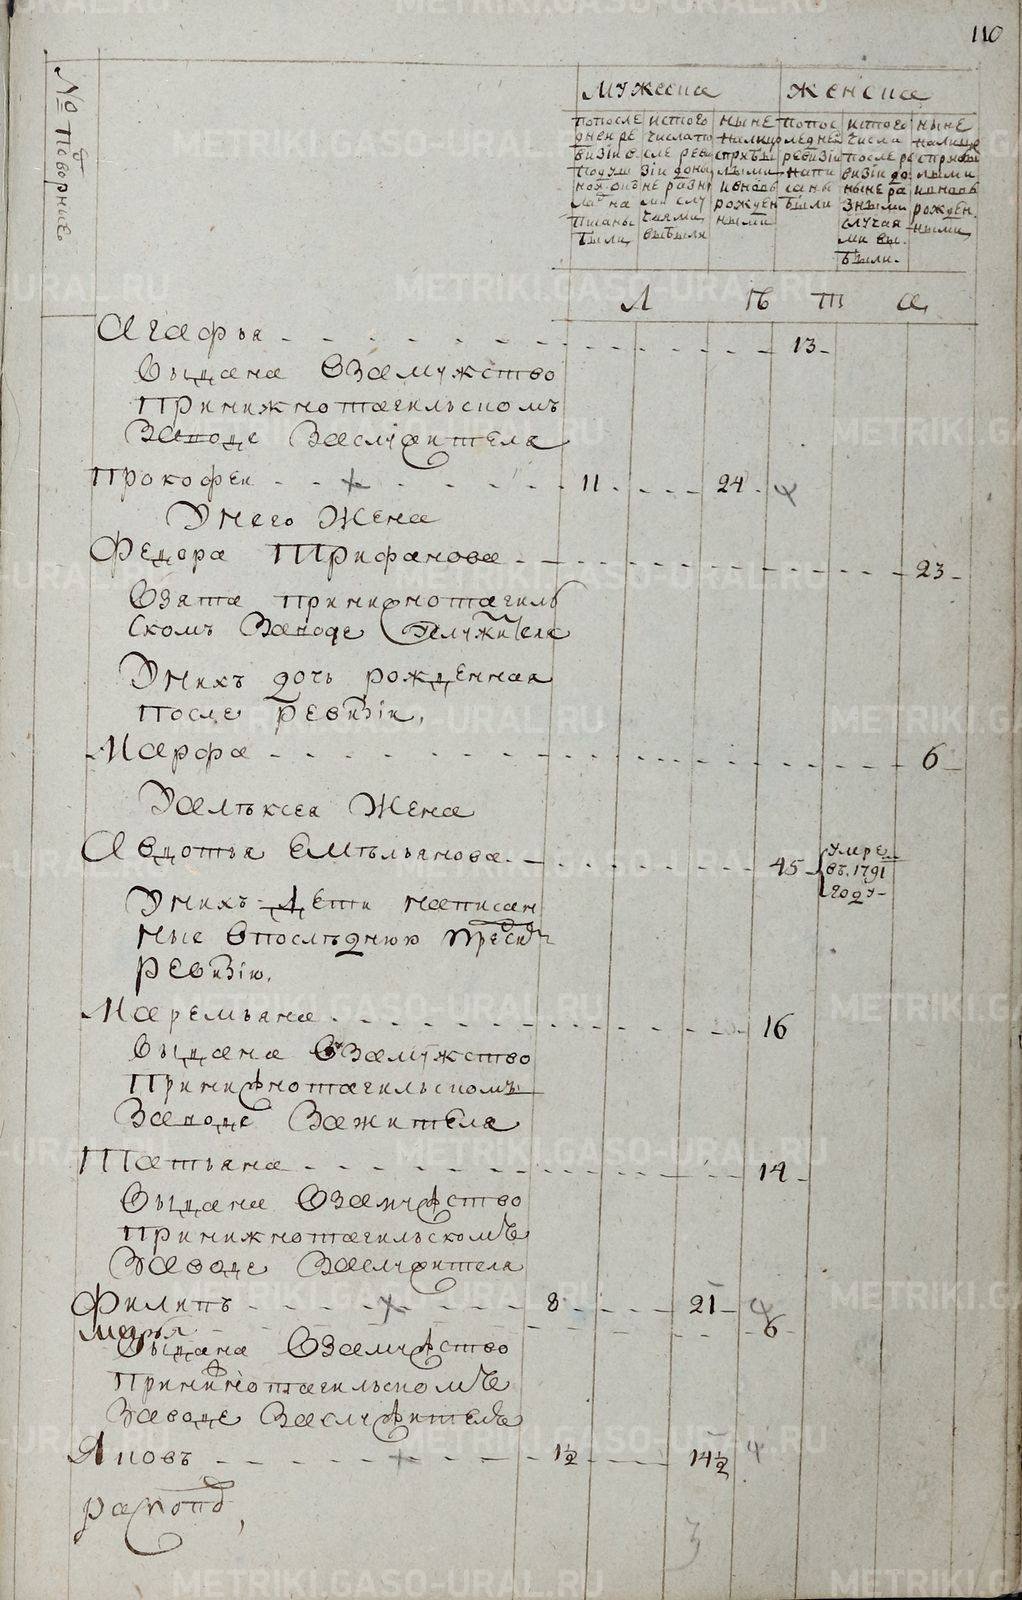 110
№ по ворнис.
мужеска
женска
попосле
дней ре
визiи в
подуш
ной он
на на
писаны
были
истого
числа по
сле реви
зiи дона
не разн
ми слу
чаями
выбыли
ныне
налицо
спребы
лыми
ивновь
рожден
ными
попос
ледней
ревизiи
напи
саны
были
истого
числа
после ре
визiи до
ныне ра
зными
случая
ми вы
были
ныне
налицо
спребы
лыми
ивновь
рожден
ными
Л ѣ т а
Агафья 13
Выдана Взамужство
Принижнотагильскомъ
Заводе Заслужителя
Прокофеи 11 24
Унего Жена
Федора Трифанова 23
Взята принижнотагиль
скомъ Заводе Служителя
Унихъ дочь рожденная
После ревизiи,
Марфа 6
Уалѣксея Жена
Авдотья Емѣльянова 45 умре въ 1791 году
Унихъ Дети написан
ные впослѣднюю пред
ревизiю,
Маремьяна 16
Выдана Взамужство
Принижнотагильскомъ
Заводе Зажителя
Татьяна 14
Выдана Взамужство
принижнотагильскомъ
Заводе Заслужителя
Филипъ 8 21
Марья 6
Выдана Взамужство
Принижнотагильскомъ
Заводе Заслужителя
Яковъ 1½ 14½
3
METRIKI.GASO-URAL.RU